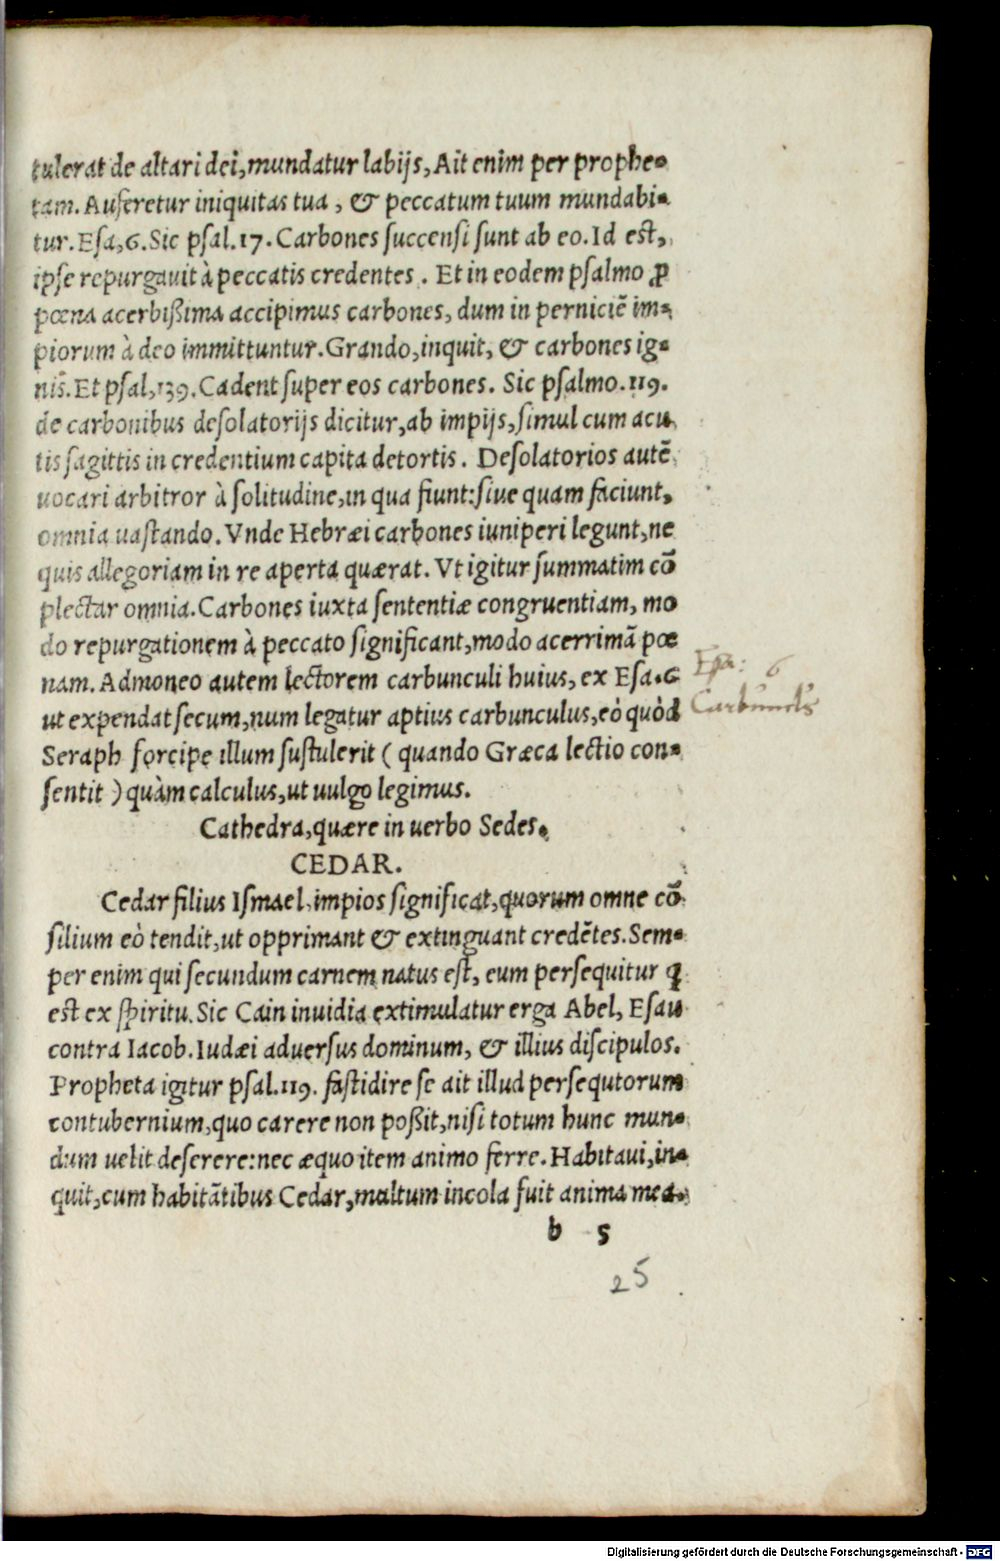 tulerat de altari dei, mundatur labijs, Ait enim per prophe-
tam. Auferetur iniquitas tua, & peccatum tuum mundabi-
tur. Esa, 6. Sic psal. 17. Carbones succensi sunt ab eo. Id est,
ipse repurgavit à peccatis credentes. Et in eodem psalmo ꝓ
pœna acerbißima accipimus carbones, dum in perniciẽ im-
piorum à deo immittuntur. Grando, inquit, & carbones ig-
nis. Et psal, 139. Cadent super eos carbones. Sic psalmo. 119.
de carbonibus desolatorijs dicitur, ab impijs, simul cum acu
tis sagittis in credentium capita detortis. Desolatorios autẽ
uocari arbitror à solitudine, in qua fiunt: siue quam faciunt,
omnia uastando. Vnde Hebræi carbones iuniperi legunt, ne
quis allegoriam in re aperta quærat. Vt igitur summatim cõ
plectar omnia. Carbones iuxta sententiæ congruentiam, mo
do repurgationem à peccato significant, modo acerrimã pœ
nam. Admoneo autem lectorem carbunculi huius, ex Esa. 6
ut expendat secum, num legatur aptius carbunculus, eò quòd
Seraph forcipe illum sustulerit ( quando Græca lectio con-
sentit ) quàm calculus, ut uulgo legimus.
Esa: 6
Carbunculus
Cathedra, quære in uerbo Sedes.
CEDAR.
Cedar filius Ismael, impios significat, quorum omne cõ
silium eò tendit, ut opprimant & extinguant credẽtes. Sem-
per enim qui secundum carnem natus est, eum persequitur q
est ex spiritu. Sic Cain inuidia extimulatur erga Abel, Esau
contra Iacob. Iudæi aduersus dominum, & illius discipulos.
Propheta igitur psal. 119. fastidire se ait illud persequtorum
contubernium, quo carere non poßit, nisi totum hunc mun-
dum uelit deserere: nec æquo item animo ferre. Habitaui, in-
quit, cum habitãtibus Cedar, multum incola fuit anima mea.
b 5
25
Digitalisierung gefördert durch die Deutsche Forschungsgemeinschaft - DFG